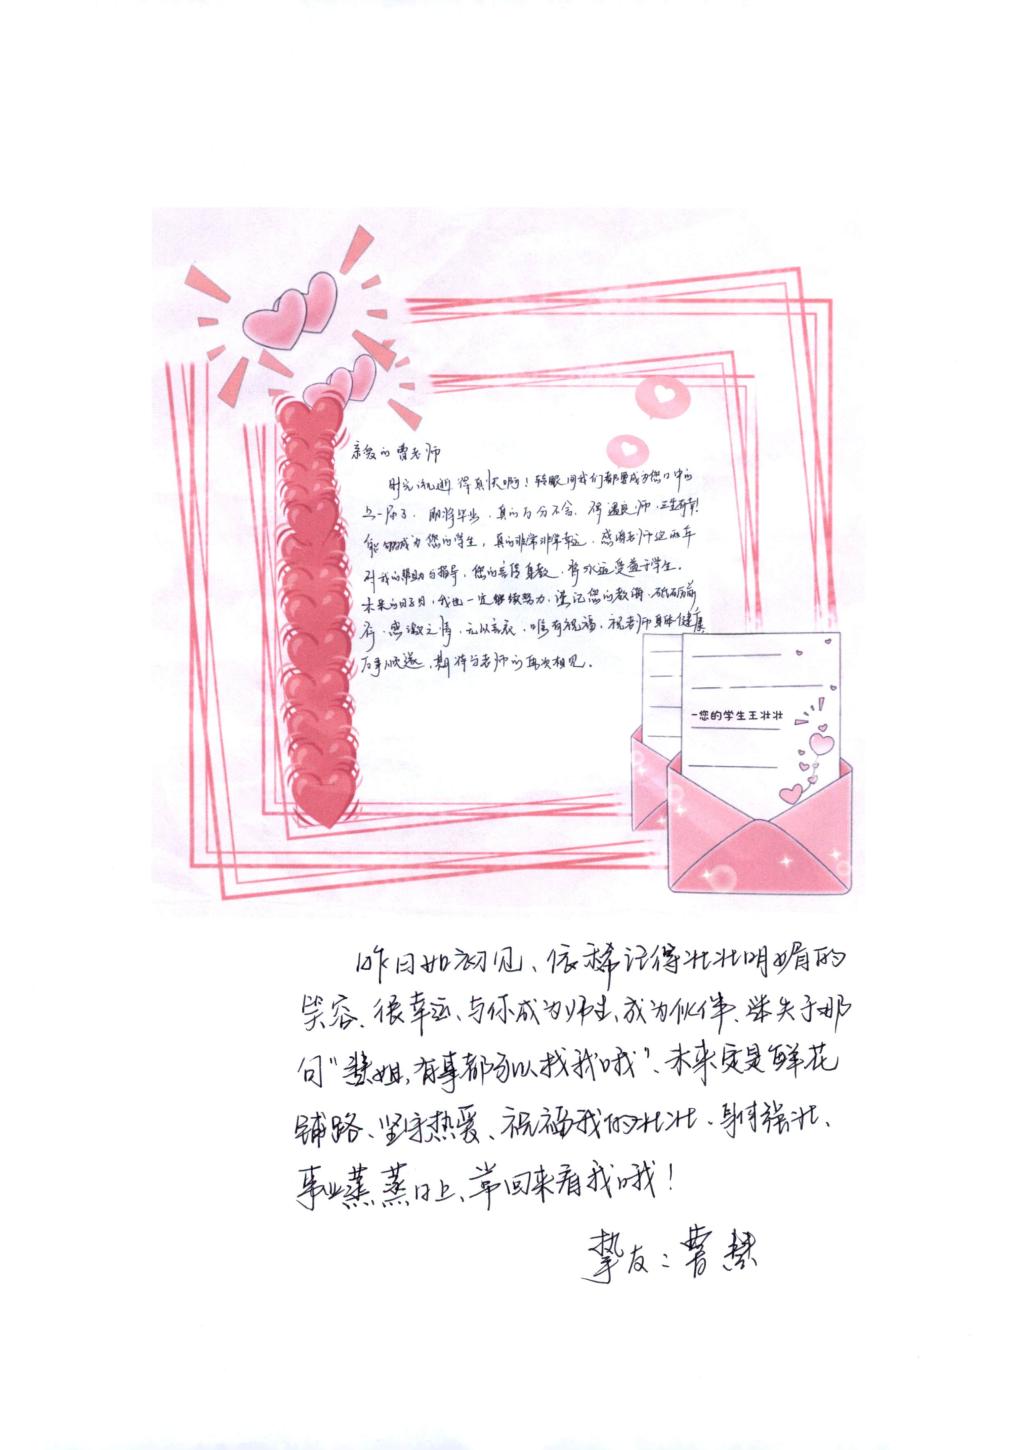 亲爱的曹老师
时光流逝得真快啊！转眼间我们都要成为您口中的
上一届了，即将毕业，真的万分不舍，得遇良师，三生有幸！
能够成为您的学生，真的非常非常幸运，感谢老师这两年
对我的帮助与指导，您的言传身教，将永远受益于学生。
未来的日子，我也一定继续努力，谨记您的教诲，砥砺前
行，感激之情，无从言表，唯有祝福，祝老师身体健康
万事顺遂，期待与老师的再次相见。
-您的学生王壮壮
昨日如初见、依稀记得壮壮明媚的
笑容、很幸运、与你成为师生、成为伙伴、于那
句“慧姐，有事都可以找我哦”、未来定是鲜花
铺路、坚守热爱、祝福我的壮壮、身体强壮、
事业蒸蒸日上、常回来看我哦！
挚友：曹慧